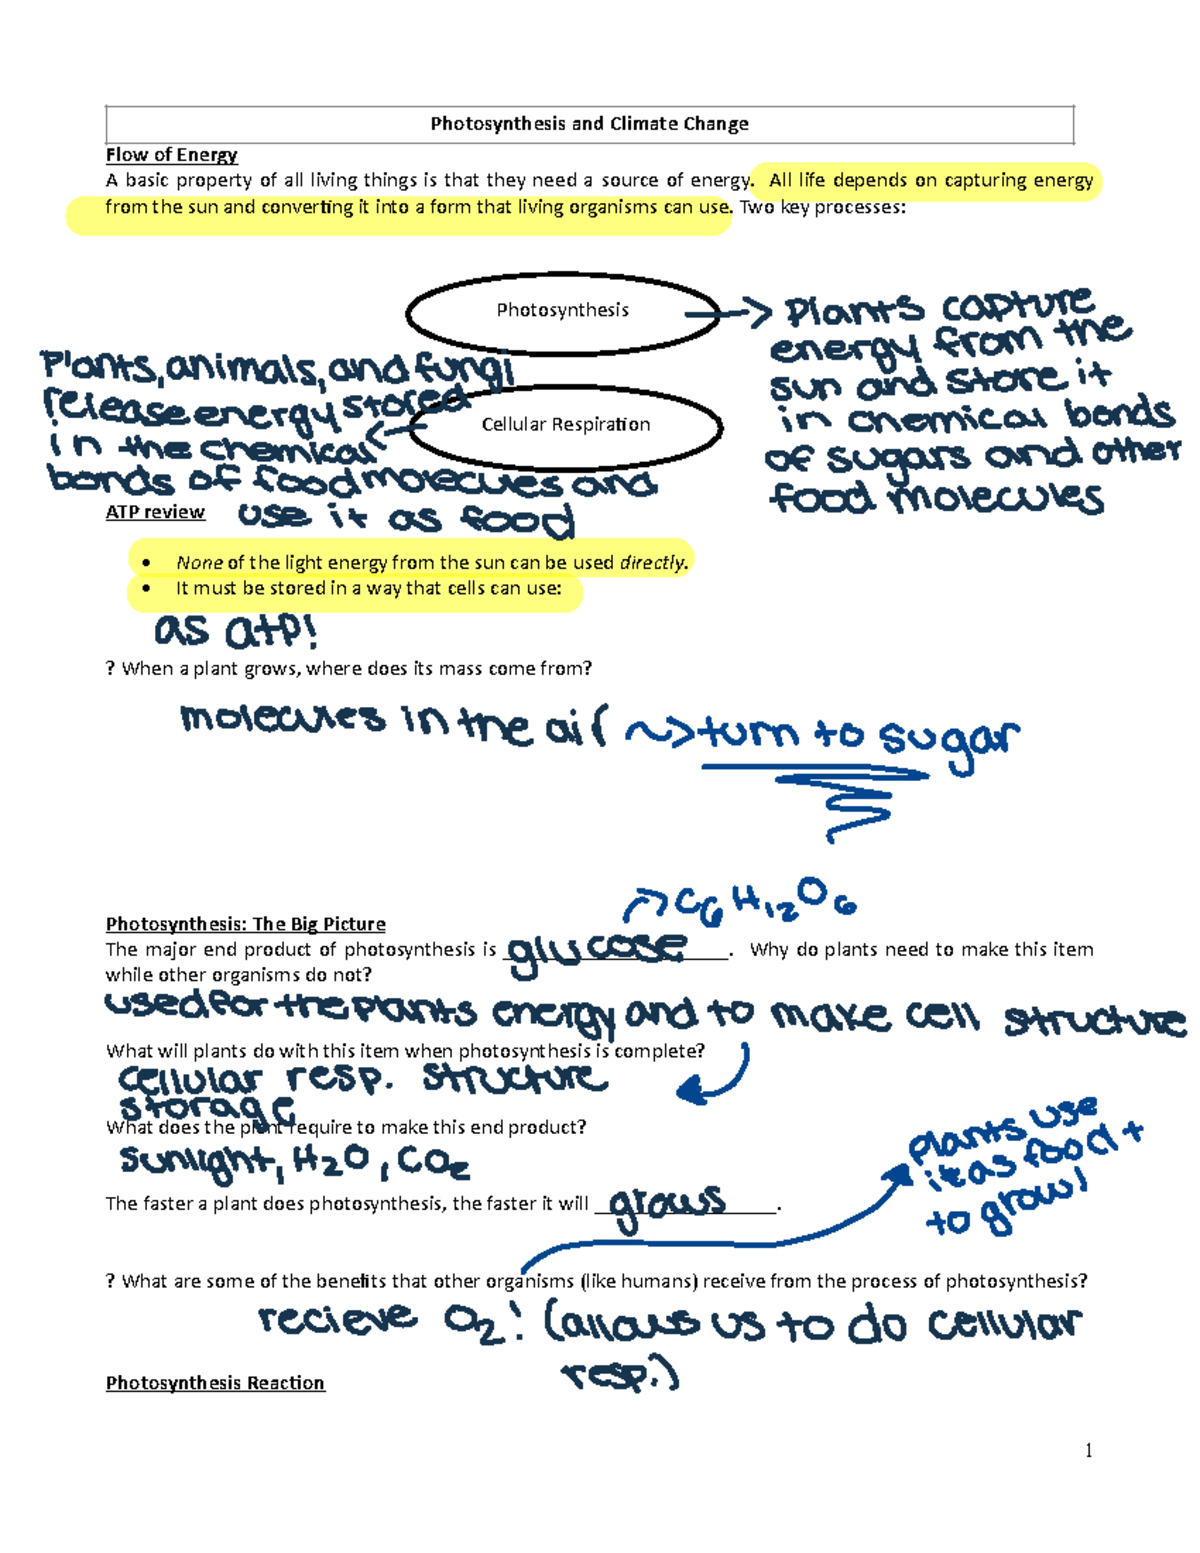 Photosynthesis and Climate Change
Flow of Energy
A basic property of all living things is that they need a source of energy. All life depends on capturing energy
from the sun and converting it into a form that living organisms can use. Two key processes:
Photosynthesis
Plants capture
energy from the
sun and store it
in chemical bonds
of sugars and other
food molecules
Cellular Respiration
Plants, animals, and fungi
release energy stored
in the chemical
bonds of food molecules and
use it as food
ATP review
• None of the light energy from the sun can be used directly.
• It must be stored in a way that cells can use:
as atp!
? When a plant grows, where does its mass come from?
molecules in the air ~> turn to sugar
Photosynthesis: The Big Picture
C6H12O6
The major end product of photosynthesis is glucose. Why do plants need to make this item
while other organisms do not?
used for the plants energy and to make cell structure
What will plants do with this item when photosynthesis is complete?
cellular resp. structure
storage
What does the plant require to make this end product?
sunlight, H2O, CO2
The faster a plant does photosynthesis, the faster it will grows.
plants use
it as food +
to grow!
? What are some of the benefits that other organisms (like humans) receive from the process of photosynthesis?
recieve O2! (allows us to do cellular
resp.)
Photosynthesis Reaction
1